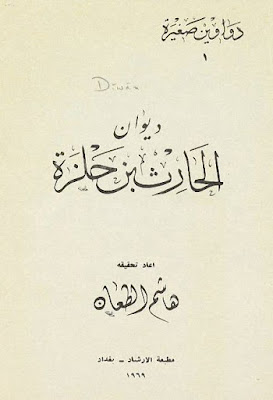 دواوين صغيرة
١
Diwan
ديوان
الحارث بن حلزة
اعاد تحقيقه
هاشم الطعان
مطبعة الارشاد - بغداد
١٩٦٩